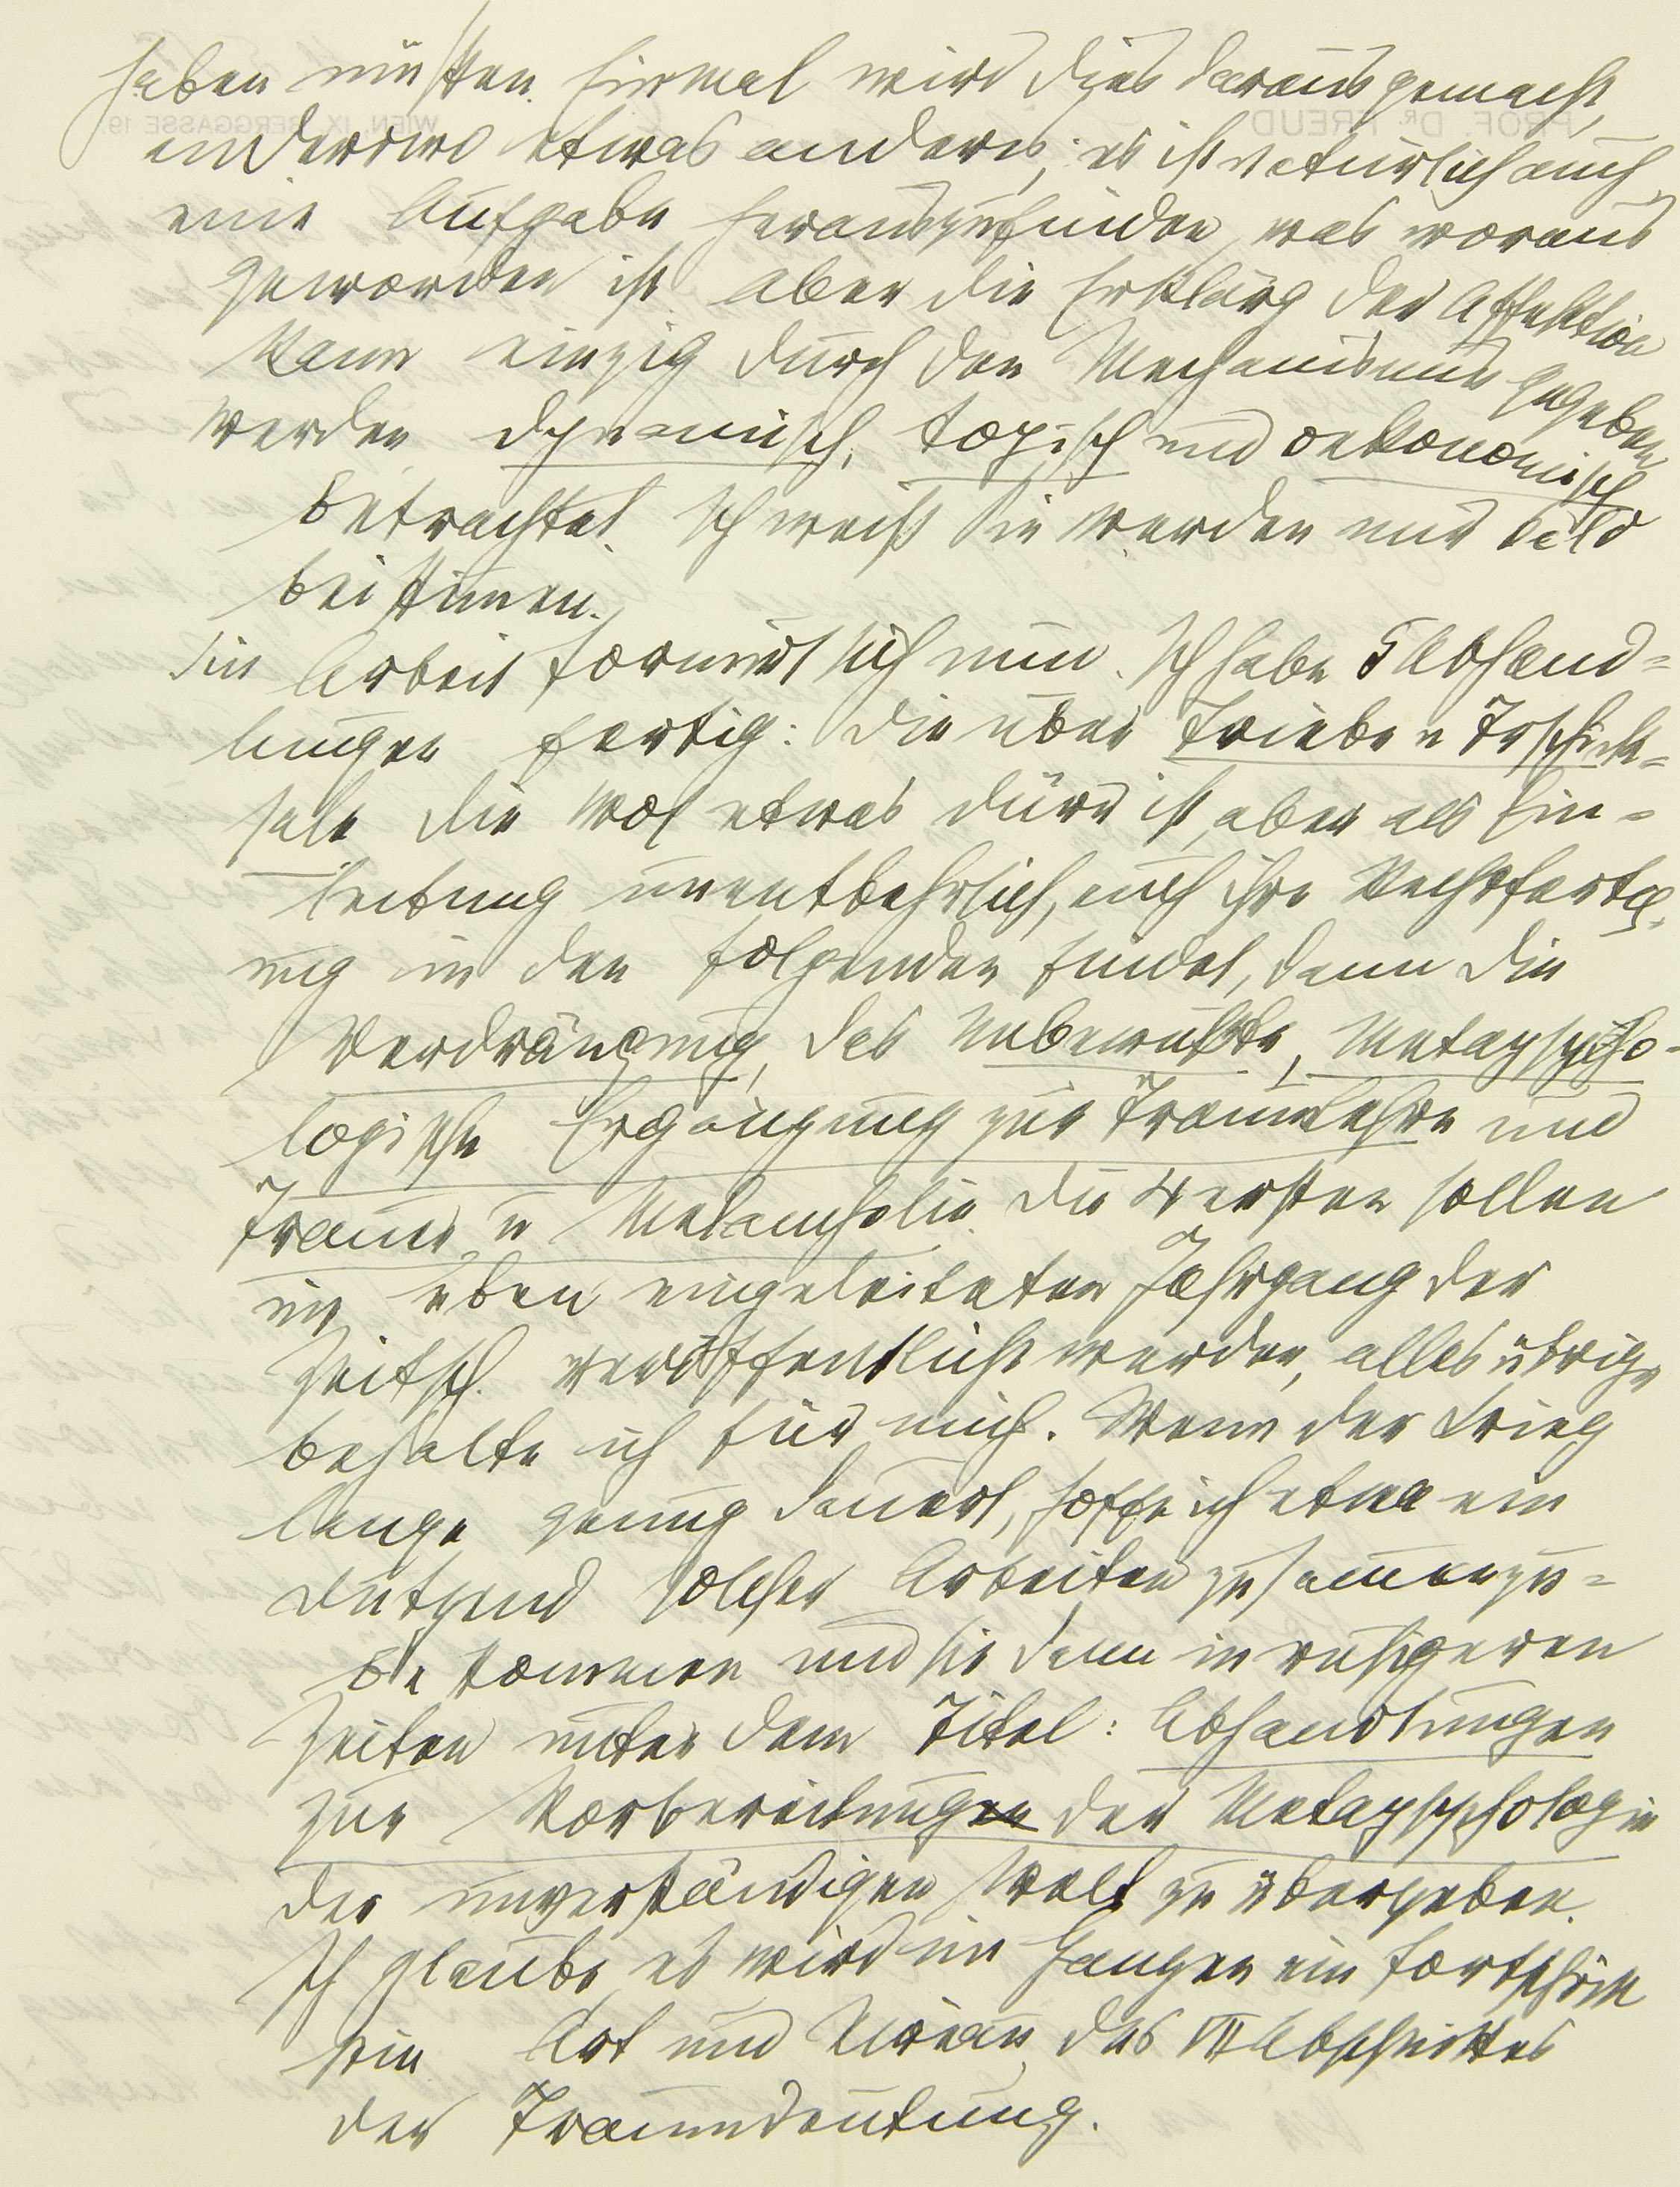 haben müßten. Einmal wird dies daraus gemacht,
anderswo etwas anderes; es ist natürlich auch
eine Aufgabe herauszufinden, was woraus
geworden ist, aber die Erklärg der Affektion
kann einzig durch den Mechanismus gegeben
werden dynamisch, topisch und oekonomisch
betrachtet. Ich weiß Sie werden mir bald
beistimen.
Die Arbeit formirt sich nun. Ich habe 5 Abhand=
lungen fertig: Die über Triebe u Triebschick=
sale die wol etwas dürr ist, aber als Ein=
leitung unentbehrlich, auch ihre Rechtfertig=
ung in den folgenden findet, dann die
Verdrängung, das Unbewußte, Metapsycho-
logische Ergänzung zur Traumlehre und
Trauer u Melancholie. Die 4 ersten sollen
im eben eingeleiteten Jahrgang der
Zeitsch. veröffentlicht werden, alles übrige
behalte ich für mich. Wenn der Krieg
lange genug dauert, hoffe ich etwa ein
Dutzend solcher Arbeiten zusammenzu=
bekommen und sie dann in ruhigeren
Zeiten unter dem Titel: Abhandlungen
zur Vorbereitung der Metapsychologie
der unverständigen Welt zu übergeben.
Ich glaube, es wird im Ganzen ein Fortschritt
sein Art und Niveau des VII Abschnittes
der Traumdeutung.